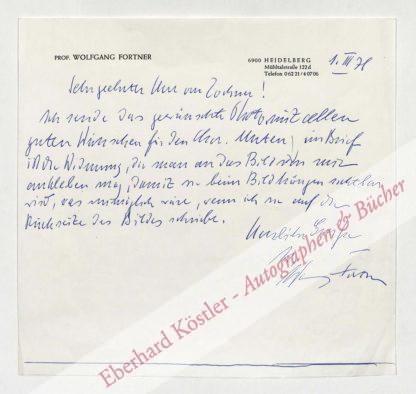 PROF. WOLFGANG FORTNER
6900 HEIDELBERG
Mühltalstraße 122d
Telefon 06221/40706
1. III 78
Sehr geehrter Herr von
Ich sende das gewünschte Photo mit allen
guten Wünschen für den Chor. Unten im Brief
ist die Widmung, die man an das Bild von mir
ankleben mag, damit sie beim Bildhängen sichtbar
wird, was unmöglich wäre, wenn ich sie auf die
Rückseite des Bildes schriebe.
Herzliche Grüße
Ihr
Wolfgang Fortner
Eberhard Köstler - Autographen & Bücher